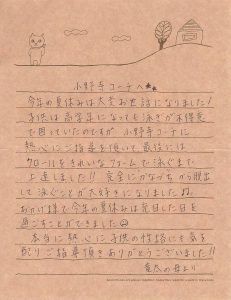 小野寺コーチへ★★
今年の夏休みは大変お世話になりました！
子供は高学年になっても泳ぎが不得意
で困っていたのですが 小野寺コーチに
熱心にご指導を頂いて、最後には
クロールをきれいなフォームで泳ぐまで
上達しました!! 完全にかなづちから脱出
して泳ぐことが大好きになりましたね。
おかげ様で今年の夏休みは充実した日を
過ごすことができました☺
本当に熱心に子供の性格にも気を
配りご指導ありがとうございました!!
竜太の母より